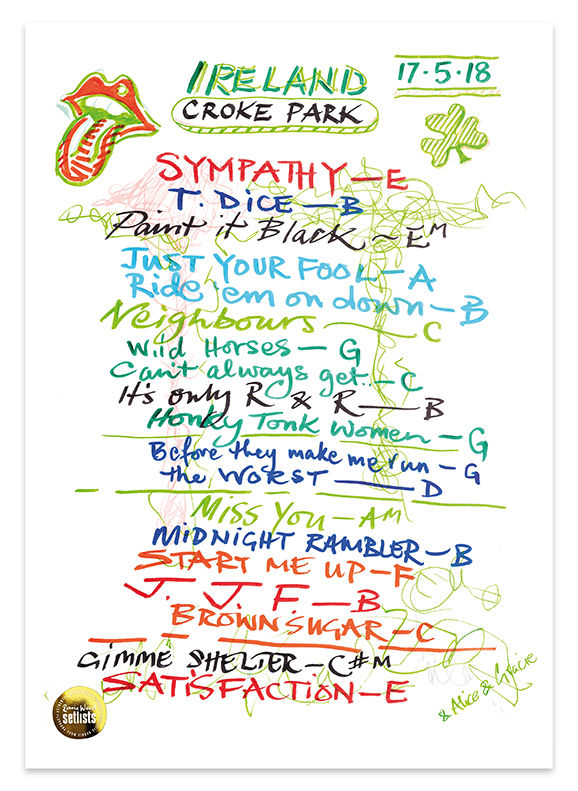 IRELAND
17·5·18
CROKE PARK
SYMPATHY — E
T. DICE — B
Paint it Black ~ EM
JUST YOUR FOOL — A
Ride 'em on down — B
Neighbours — C
Wild Horses — G
Can't always get.. — C
It's only R & R — B
Honky Tonk Women — G
Before they make me run — G
the WORST — D
Miss You — AM
MIDNIGHT RAMBLER — B
START ME UP — F
J. J. F. — B
BROWN SUGAR — C
GIMME SHELTER — C#M
SATISFACTION — E
& Alice & Gracie
Ronnie Wood
setlists